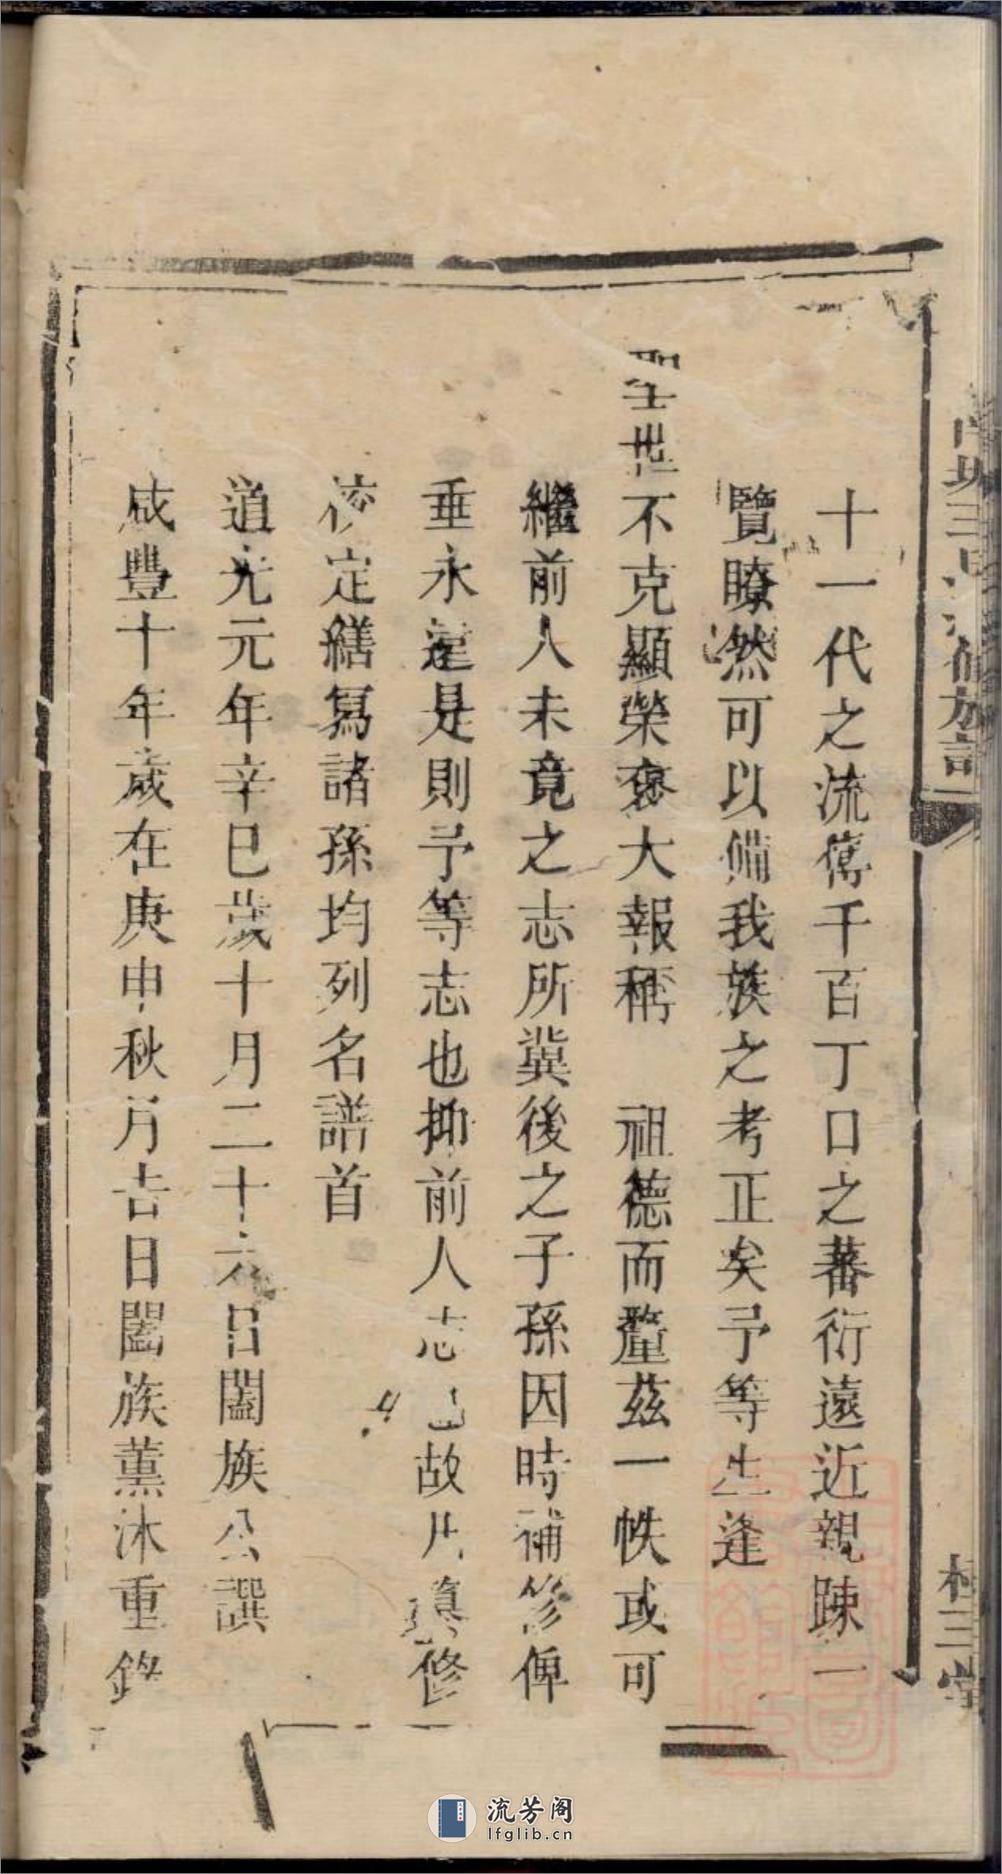 十一代之流傳千百丁口之蕃衍遠近親疎一
覽瞭然可以備我族之考正矣予等生逢
聖世不克顯榮褒大報稱　祖德而釐茲一帙或可
繼前人未竟之志所冀後之子孫因時補修俾
垂永遠是則予等志也抑前人志也故凡纂修
校定繕寫諸孫均列名譜首
道光元年辛巳歲十月二十六日闔族公譔
咸豐十年歲在庚申秋月吉日闔族薰沐重錄
三
修族譜
三堂
流芳阁
lfglib.cn